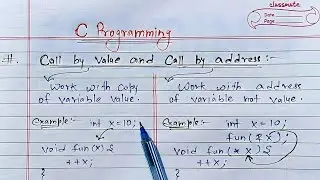 classmate
Date
Page
C Programming
#. Call by value and Call by address :-
Work with copy of variable value.
Work with address of variable not value.
Example:- int x = 10;
void fun(x) {
++x;
}
Example:- int x = 10;
fun(&x);
void fun(*x) {
++x;
}